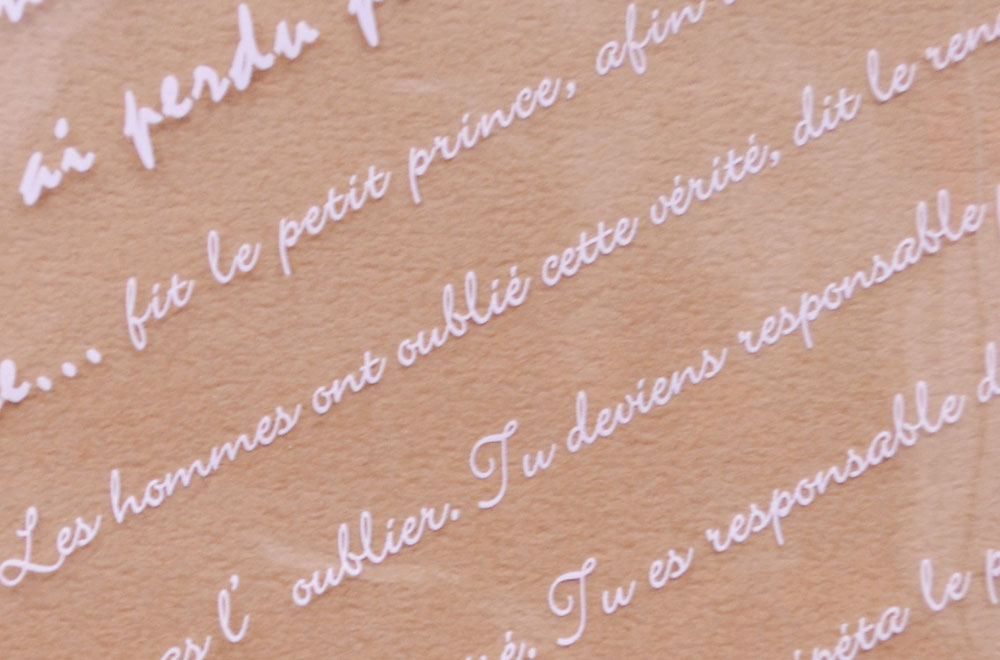 ai perdu
fit le petit prince, afin
Les hommes ont oublié cette vérité, dit le
l' oublier. Tu deviens responsable
Tu es responsable
le